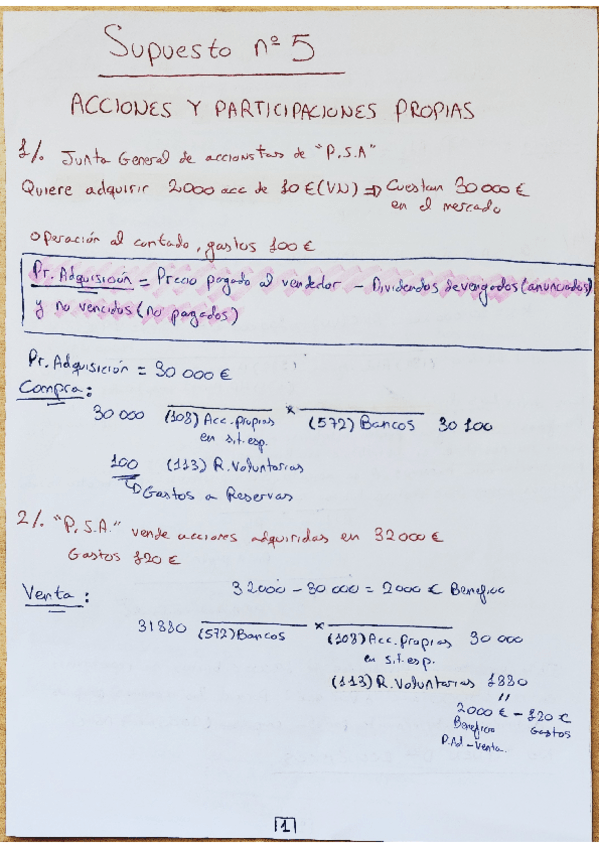 Supuesto nº 5
ACCIONES Y PARTICIPACIONES PROPIAS
1/. Junta General de accionistas de "P.S.A"
Quiere adquirir 2000 acc de 10 € (VN) ⇒ Cuestan 30 000 €
en el mercado
Operación al contado, gastos 100 €
Pr. Adquisición = Precio pagado al vendedor - Dividendos devengados (anunciados)
y no vencidos (no pagados)
Pr. Adquisición = 30 000 €
Compra:
30 000 (108) Acc. propias x (572) Bancos 30 100
en sit. esp.
100 (113) R. Voluntarias
↳ Gastos a Reservas
2/. "P.S.A." vende acciones adquiridas en 32 000 €
Gastos 120 €
Venta: 32 000 - 30 000 = 2000 € Beneficio
31880 (572) Bancos x (108) Acc. Propias 30 000
en sit. esp.
(113) R. Voluntarias 1880
"
2000 € - 120 €
Beneficio Gastos
P. Ad - Venta.
1